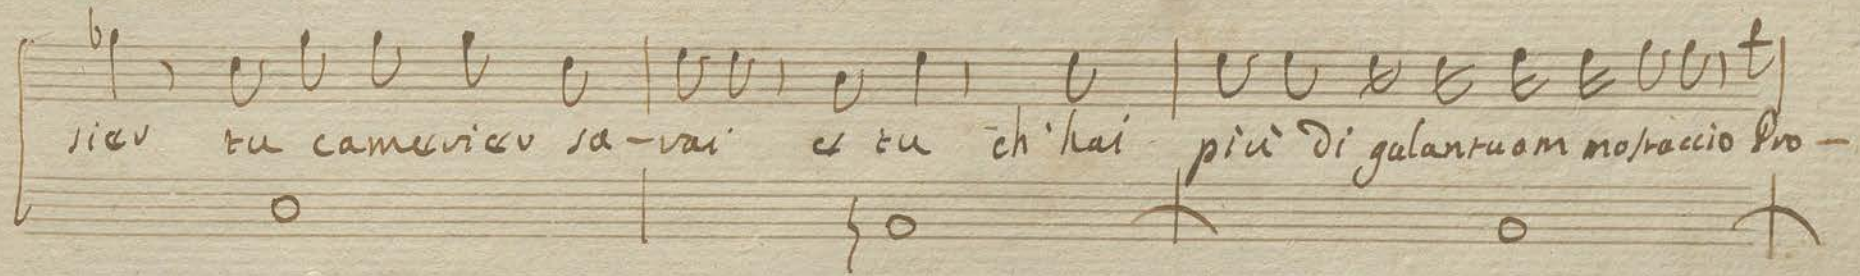 sier tu camerier sa-rai e tu ch'hai più di galantuom mostaccio Pro-